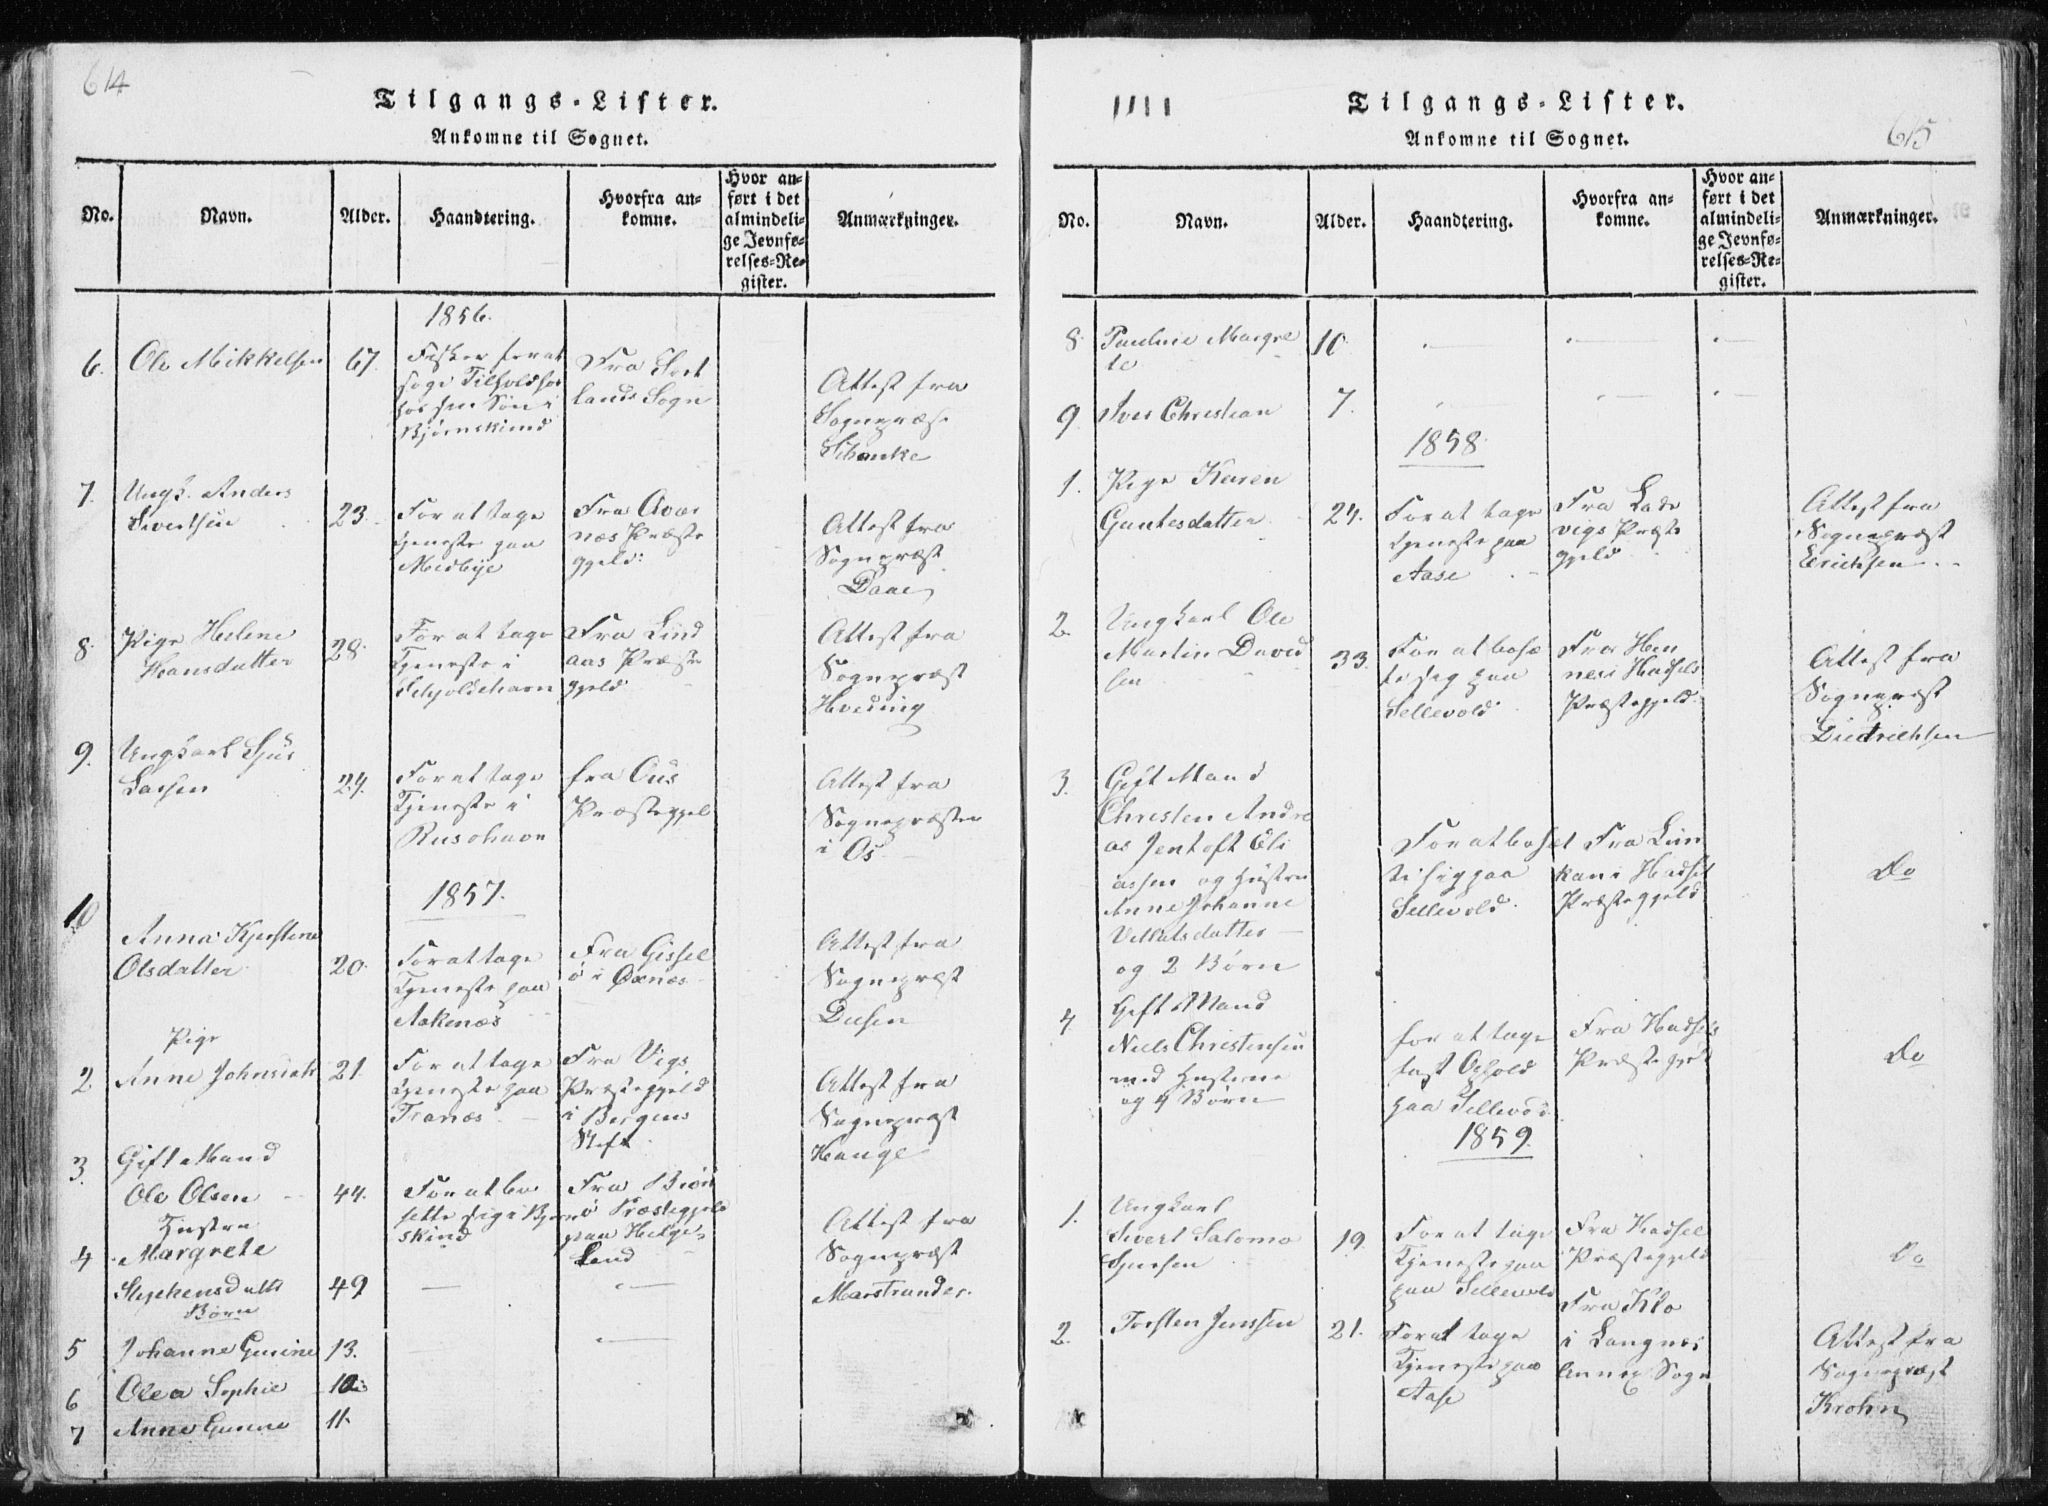 614
Tilgangs-Lister.
Ankomne til Sognet.
No. Navn. Alder. Haandtering. Hvorfra ankomne. Hvor anført i det almindelige Jevnførelses-Register. Anmærkninger.
1856.
6. Ole Mikkelsen 67. Fisker for at
søge Tilhold hos
hos sin Søn i
Bjørnskind
Fra Hort
lands Sogn
Attest fra
Sognepræst
Schanke
7. Ungk. Anders
Sivertsen 23. For at tage
Tjeneste paa
Medbye
Fra
næs Præste
gjeld:
Attest fra
Sognepræst
Daae
8. Pige Helene
Hansdatter 28. For at tage
Tjeneste i
Skjoldehavn
Fra Lind
aas Præste
gjeld
Attest fra
Sognepræst
Hveding
9. Ungkarl Sjur
Larsen 24. For at tage
Tjeneste i
Rusohavn
fra Ous
Præstegjel
Attest fra
Sognepræsten
i Os
1857.
10
Anna Kjerstine
Olsdatter 20. For at tage
Tjeneste paa
Aakenæs
Fra Gissel
ø i Øxnæs
Attest fra
Sognepræst
Pige
2. Anne Johnsdatt 21. For at tage
Tjeneste paa
Tranæs
Fra Vigs
Præstegjeld
i Bergens
Stift
Attest fra
Sognepræst
Hauge
3. Gift Mand
Ole Olsen 44. For at be
sette sig i Bjørn
skind
Fra
ø Præstegjeld
paa Helge-
land
Attest fra
Sognepræst
Marstrander.
Hustru
4 Margrete
Stephensdatt 49 — —
Børn
5 Johanne Gurine 13. —
6 Olea Sophie 12
7 Anne Gurine 11.
615
Tilgangs-Lister.
Ankomne til Sognet.
No. Navn. Alder. Haandtering. Hvorfra ankomne. Hvor anført i det almindelige Jevnførelses-Register. Anmærkninger.
8 Pauline Margre
te 10. — — —
9 Iver Christian 7. — — —
1858.
1. Pige Karen
Guntesdatter 24. For at tage
Tjeneste paa
Aase
Fra Lade
vigs Præste
gjeld
Attest fra
Sognepræst
Erichsen
2. Ungkarl Ole
Martin David
sen 33. For at bosæ
te sig paa
Sellevold
Fra Hen
nes i Hadsels
Præstegjeld.
Attest fra
Sognepræst
Diedrichsen
3. Gift Mand
Christen Andre
as Jentoft Eli
assen og Hustru
Anne Johanne
Villatsdatter —
og 2 Børn
For at bosæt
te sig paa
Sellevold.
Fra Lun
kan i Hadsel
Præstegjeld
Do
4 Gift Mand
Niels Christensen
med Hustrue
og 4 Børn
for at tage
fast Ophold
paa Sellevold.
Fra Hadsels
Præstegjel
Do
1859.
1. Ungkarl
Sivert Salomo
Sjursen 19. For at tage
Tjeneste paa
paa Sellevold
Fra Hadsel
Præstegjeld
Do
2. Torsten Jenssen 21. For at tage
Tjeneste paa
Aase
Fra Klo
i Langnes
Annex Sogn
Attest fra
Sognepræst
Krohn